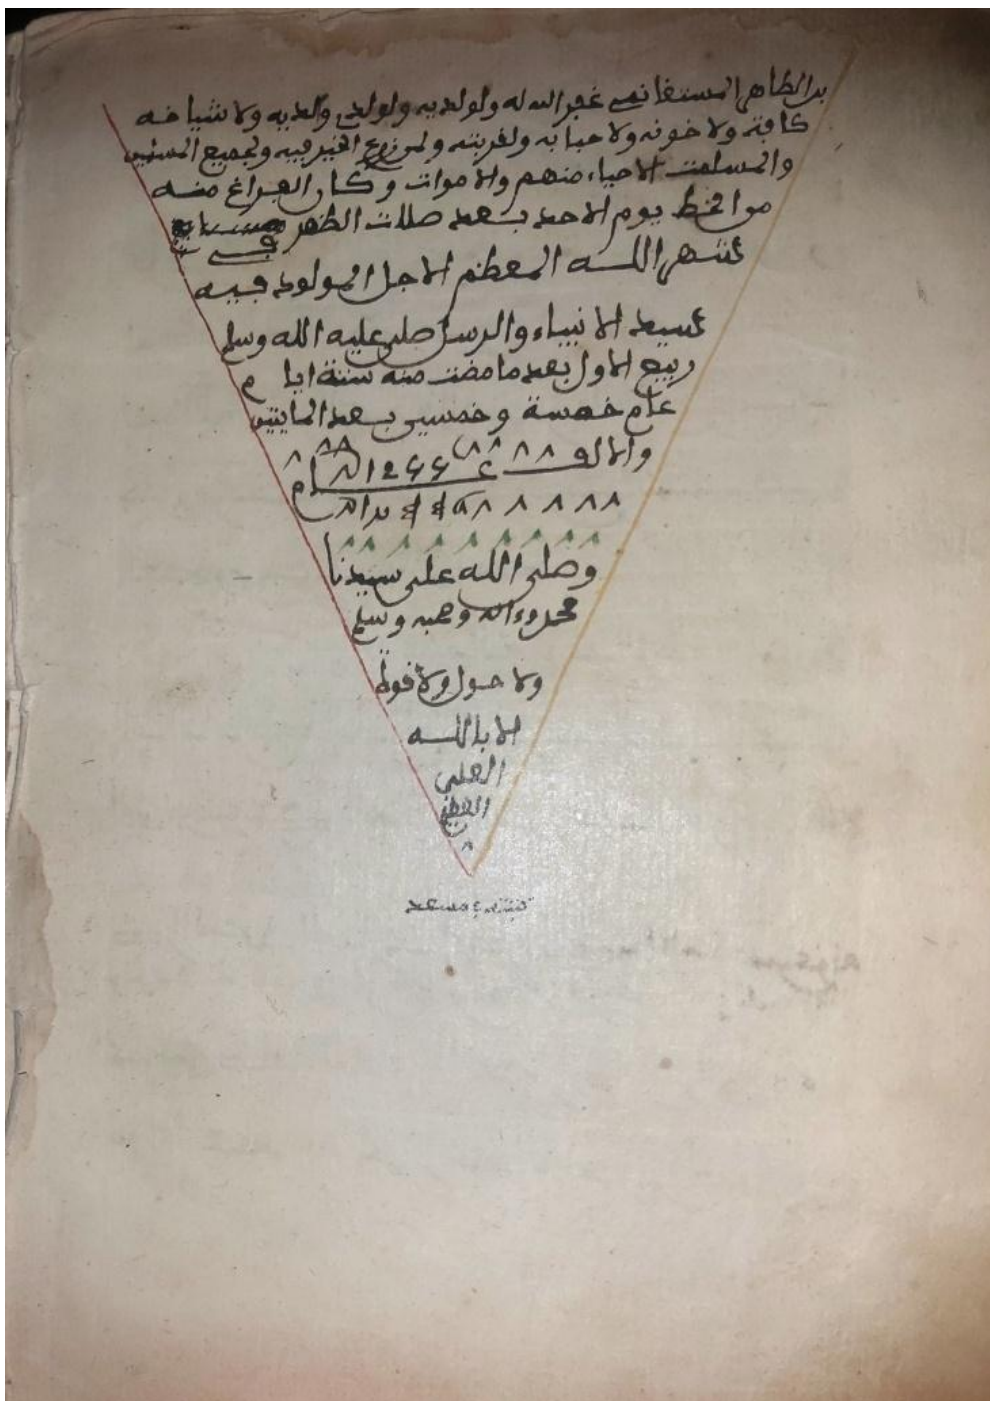 بن الطاهر المستغانمي غفر الله له ولوالديه ولوالدي والديه ولاشياخه
كافة ولاخوته ولاحبابه ولقريته ولمن زرع الخير فيه ولجميع المسلمين
والمسلمت الاحياء منهم والاموات وكان الفراغ منه
من الخط يوم الاحد بعد صلات الظهر في
شهر الله المعظم الاجل المولود فيه
سيد الانبياء والرسل صلى عليه الله وسلم
ربيع الاول بعد ما مضت منه ستة ايام
عام خمسة وخمسين بعد المايتين
والالف
وصلى الله على سيدنا
محمد وءاله وصحبه وسلم
ولا حول ولا قوة
الا بالله
العلي
العظيم